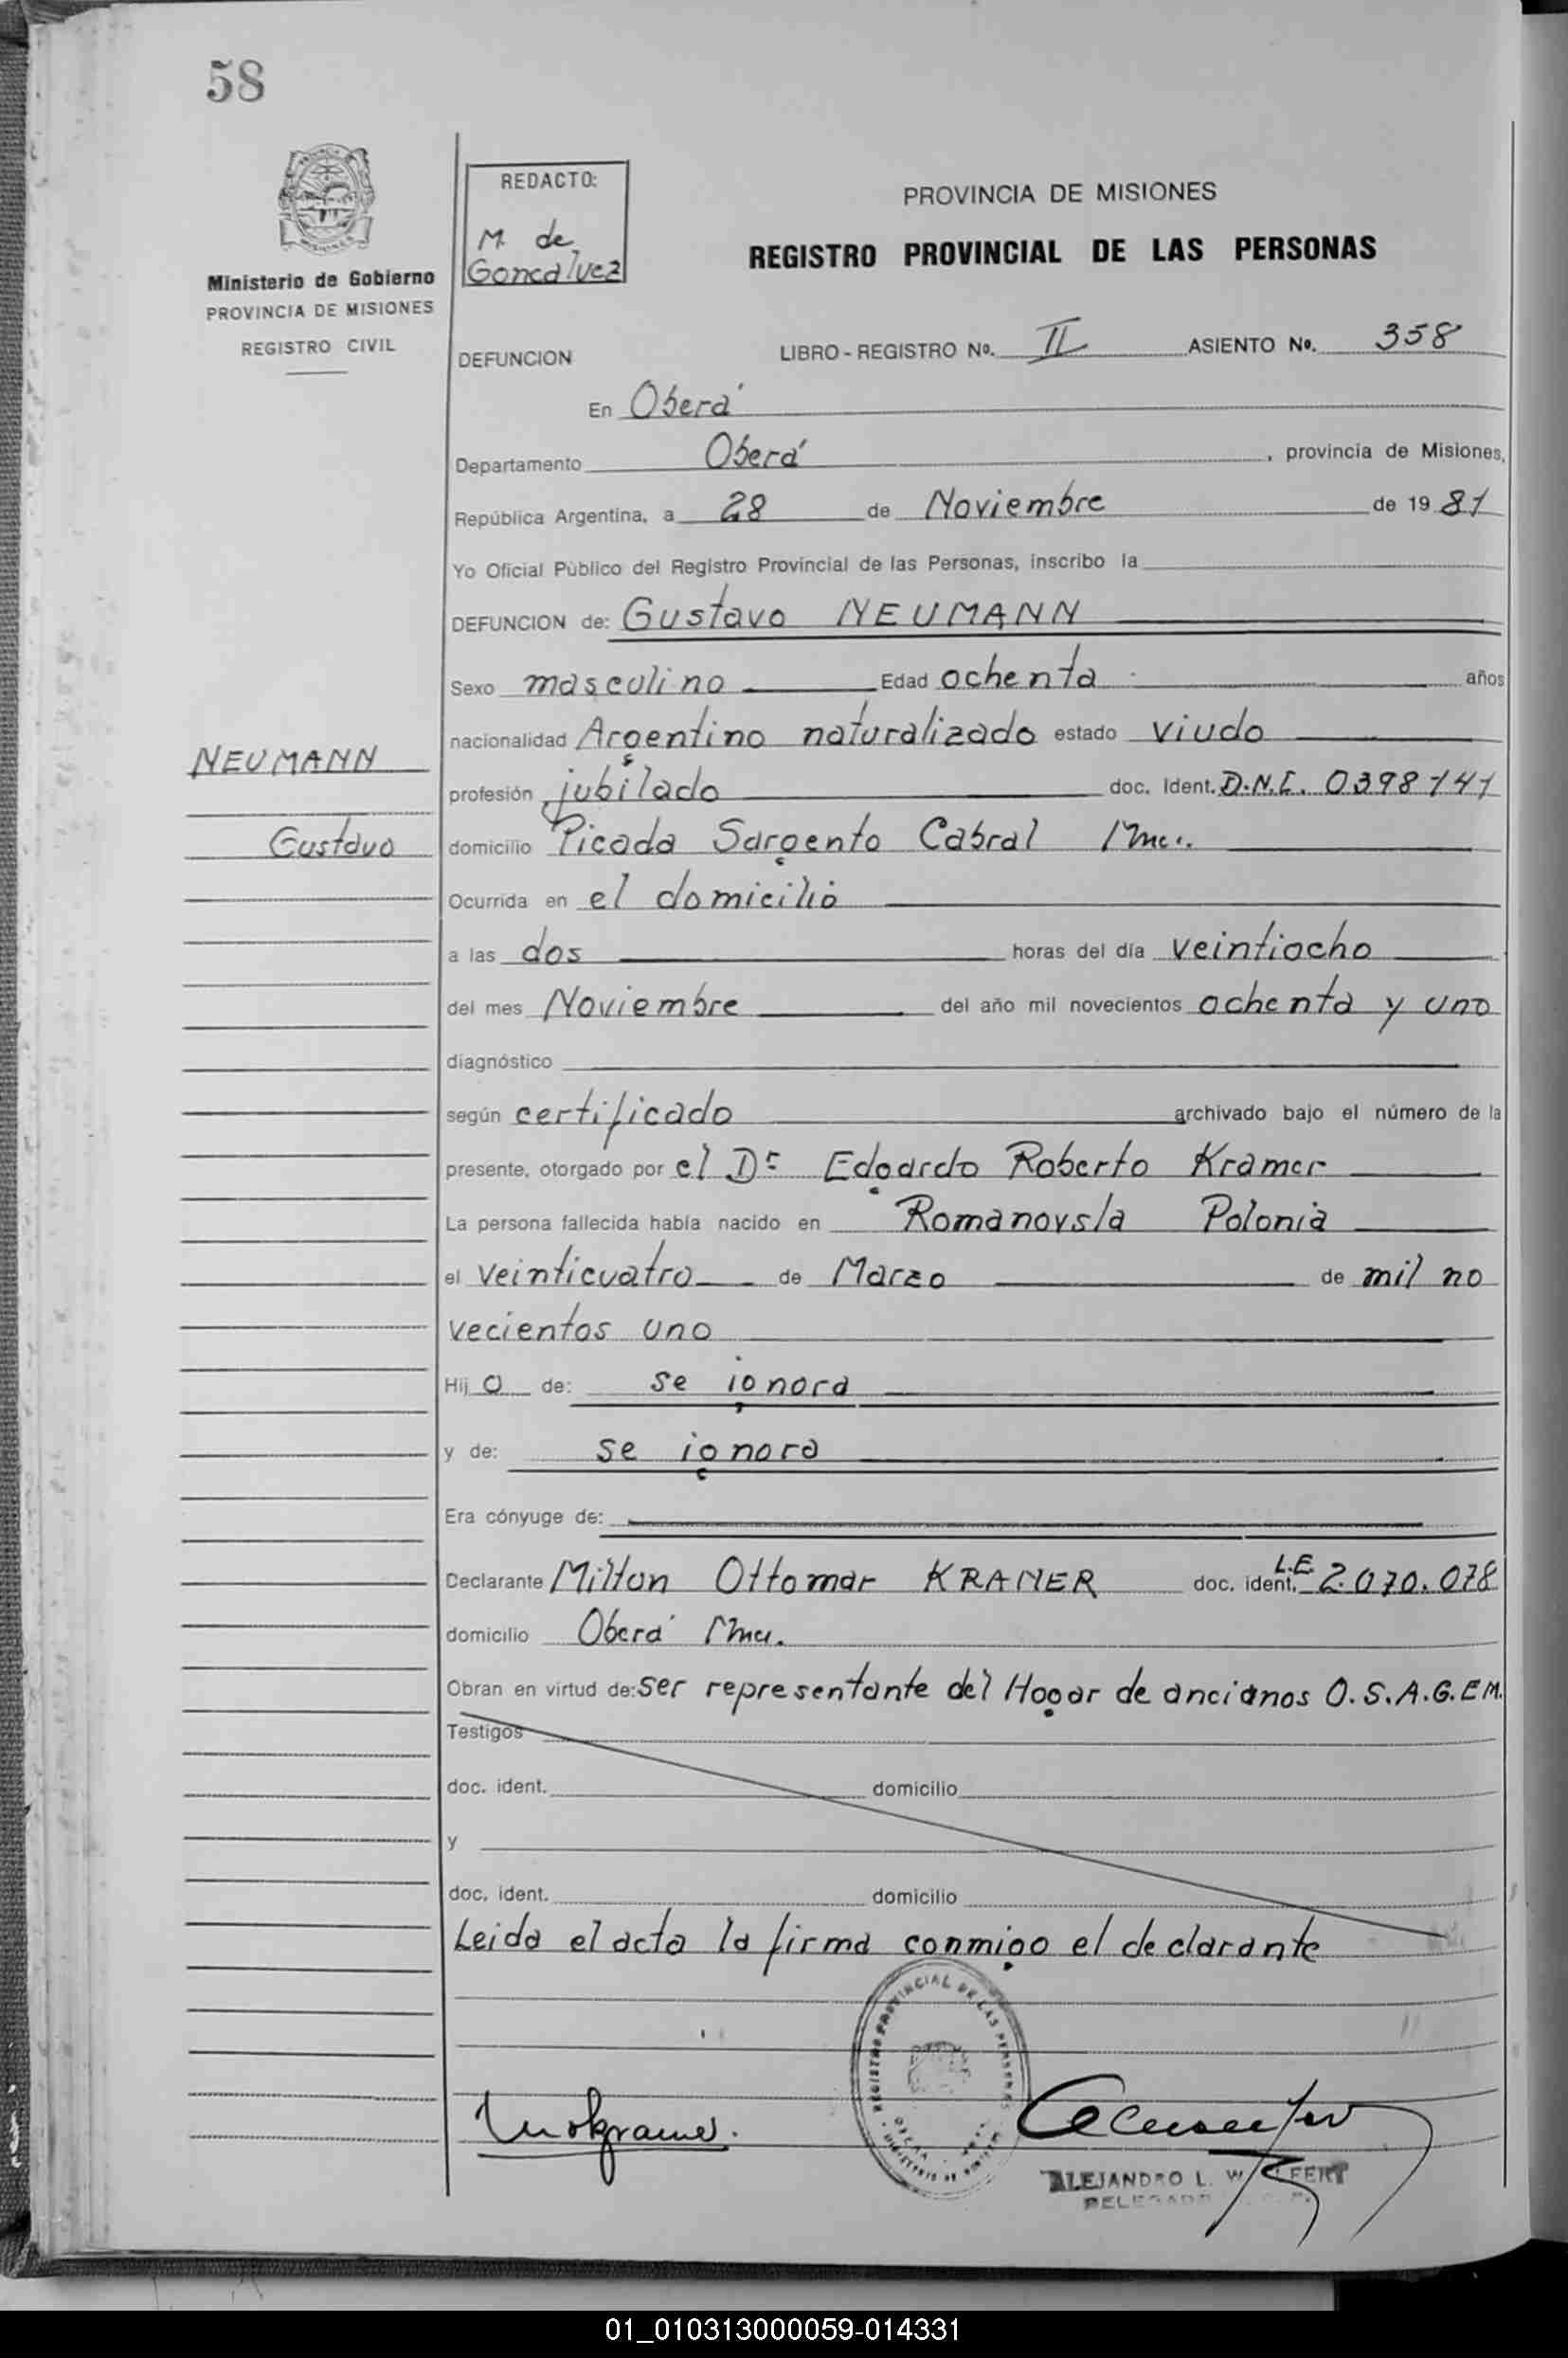 58
REDACTO:
M. de
Goncalvez
Ministerio de Gobierno
PROVINCIA DE MISIONES
REGISTRO CIVIL
PROVINCIA DE MISIONES
REGISTRO PROVINCIAL DE LAS PERSONAS
DEFUNCION LIBRO - REGISTRO Nº. II ASIENTO Nº. 358
En Oberá
Departamento Oberá, provincia de Misiones,
República Argentina, a 28 de Noviembre de 19 81
Yo Oficial Público del Registro Provincial de las Personas, inscribo la
DEFUNCION de: Gustavo NEUMANN
Sexo masculino Edad ochenta años
nacionalidad Argentino naturalizado estado viudo
NEUMANN
profesión jubilado doc. Ident. D.N.I. 0398141
Gustavo
domicilio Picada Sargento Cabral
Ocurrida en el domicilio
a las dos horas del día veintiocho
del mes Noviembre del año mil novecientos ochenta y uno
diagnóstico
según certificado archivado bajo el número de la
presente, otorgado por el Dr Edgardo Roberto Kramer
La persona fallecida había nacido en Romanovsla Polonia
el veinticuatro de Marzo de mil no
vecientos uno
Hij o de: se ignora
y de: se ignora
Era cónyuge de:
Declarante Milton Ottomar KRAMER doc. ident. L.E. 2.070.078
domicilio Oberá
Obran en virtud de: ser representante del Hogar de ancianos O.S.A.G.E.M.
Testigos
doc. ident. domicilio
y
doc. ident. domicilio
Leida el acta la firma conmigo el declarante
REGISTRO PROVINCIAL DE LAS PERSONAS
ALEJANDRO L.
01_010313000059-014331